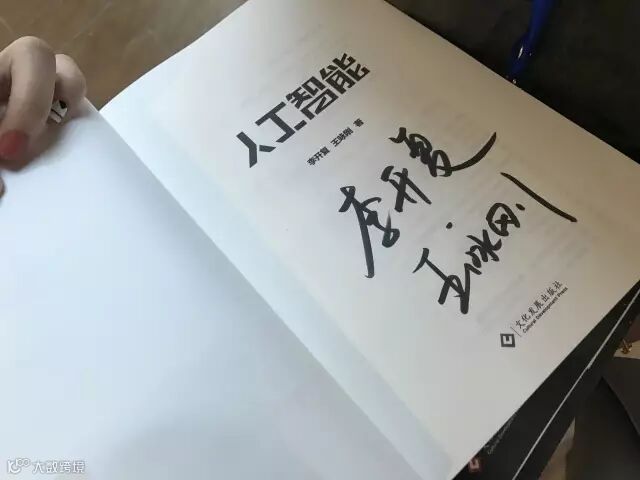 人工智能
李开复 王咏刚 著
李开复
王咏刚
文化发展出版社
Cultural Development Press
大数跨境